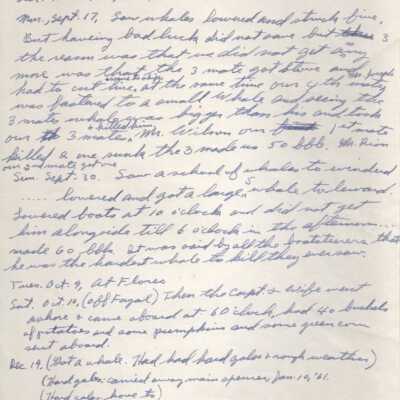 Mon., Sept. 17, Saw whales lowered and struck five.
But haveing bad luck did not save but 3
the reason was that we did not get any
more was the 3 mate got stove and
had to cut line, at the same time our 4th mate
was fastened to a small whale and seeing the
3 mates whale was bigger than his and took
our 3 mates, & killed him Mr. Wilson our 1st mate
killed a one sunk the 3 made us 50 bbls.
our 2nd mate got
Sun. Sept. 30. Saw a school of whales to windard
..... lowered and got a large whale to leward.
Lowered boats at 10 o'clock and did not get
him alongside till 6 o'clock in the afternoon...
made 60 bbls. It was said by all the boatsteerers that
he was the hardest whale to kill they ever saw.
Tues. Oct. 9, At Flores
Sat. Oct. (off Fayal) Then the Capt. & wife went
ashore & came aboard at 6 o'clock, had 40 bushels
of potatoes and some pumpkins and some green corn
sent aboard.
Dec 19. (Got a whale. Had hard gales & rough weather)
(Hard gales, carried away main spencer, Jan. 10, '61.
(Hard gales, hove to)